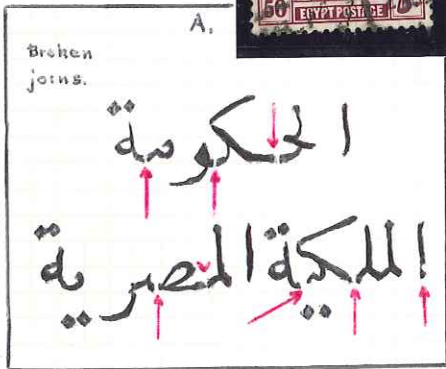 A.
50 EGYPT POSTAGE
Broken
joins.
الحكومة
الملكية المصرية